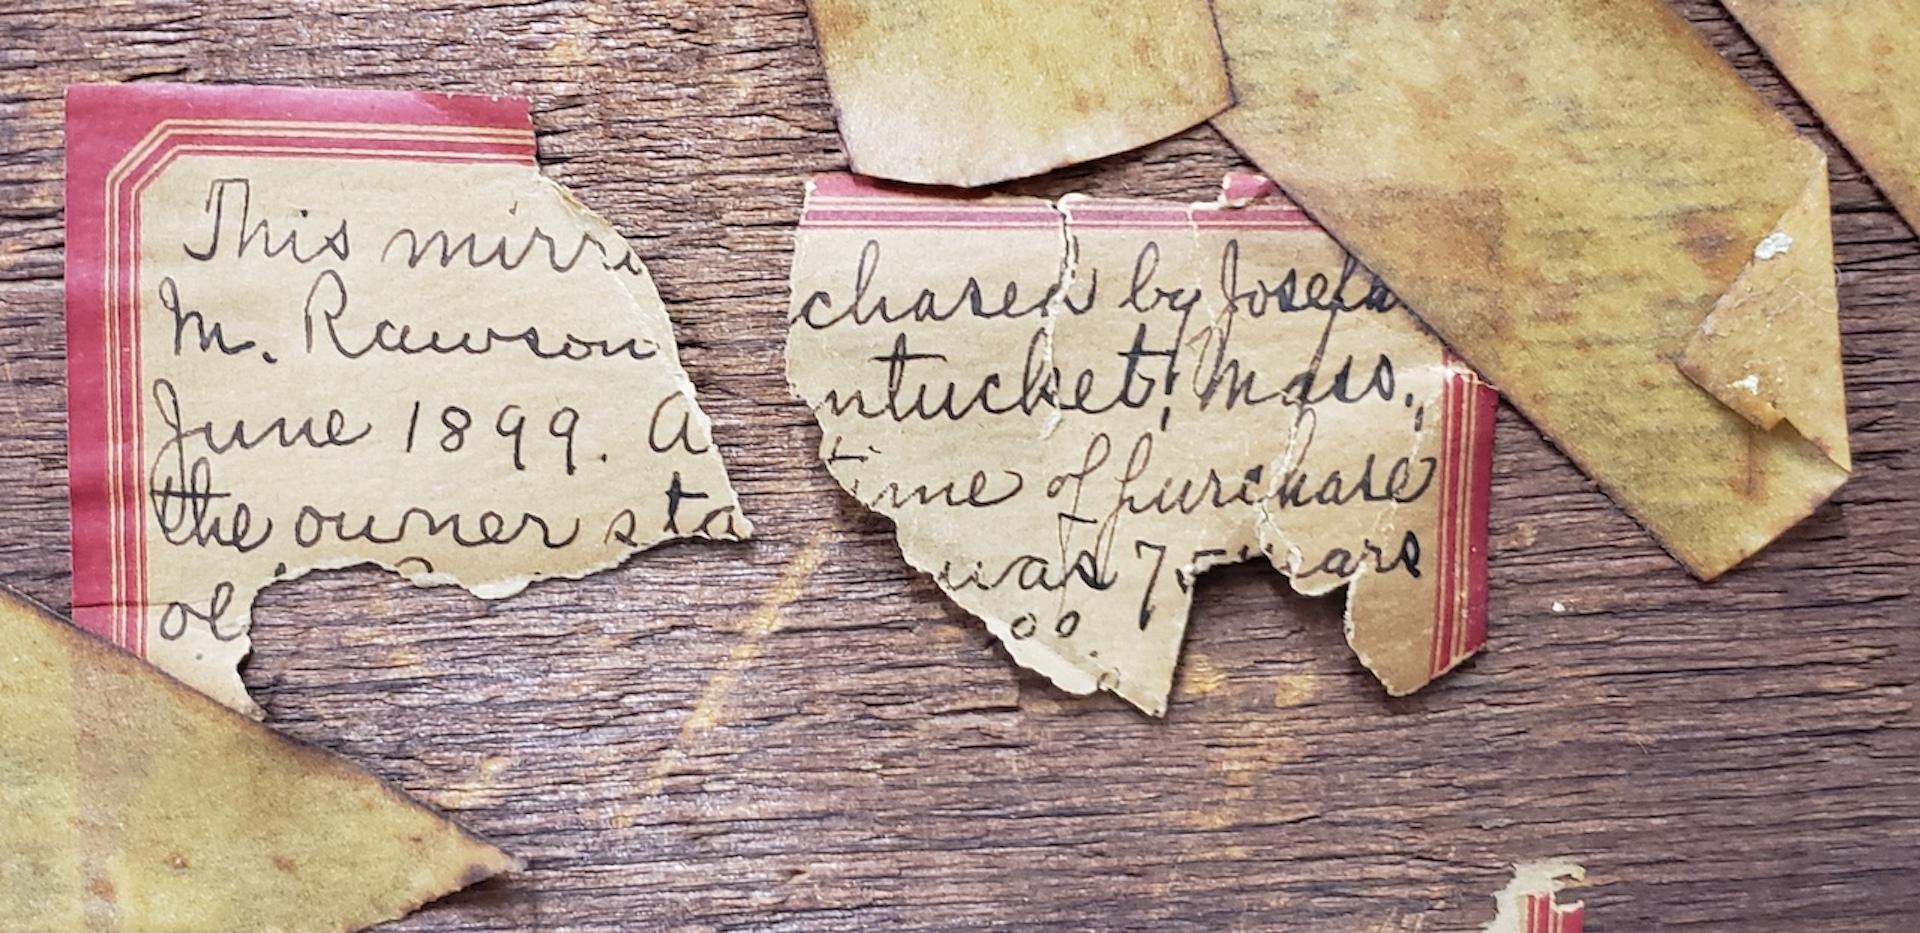 This mirr chased by Joseph
M. Rawson ntucket, Mass.,
June 1899. A time of purchase
the owner sta was 75 years
ol 00